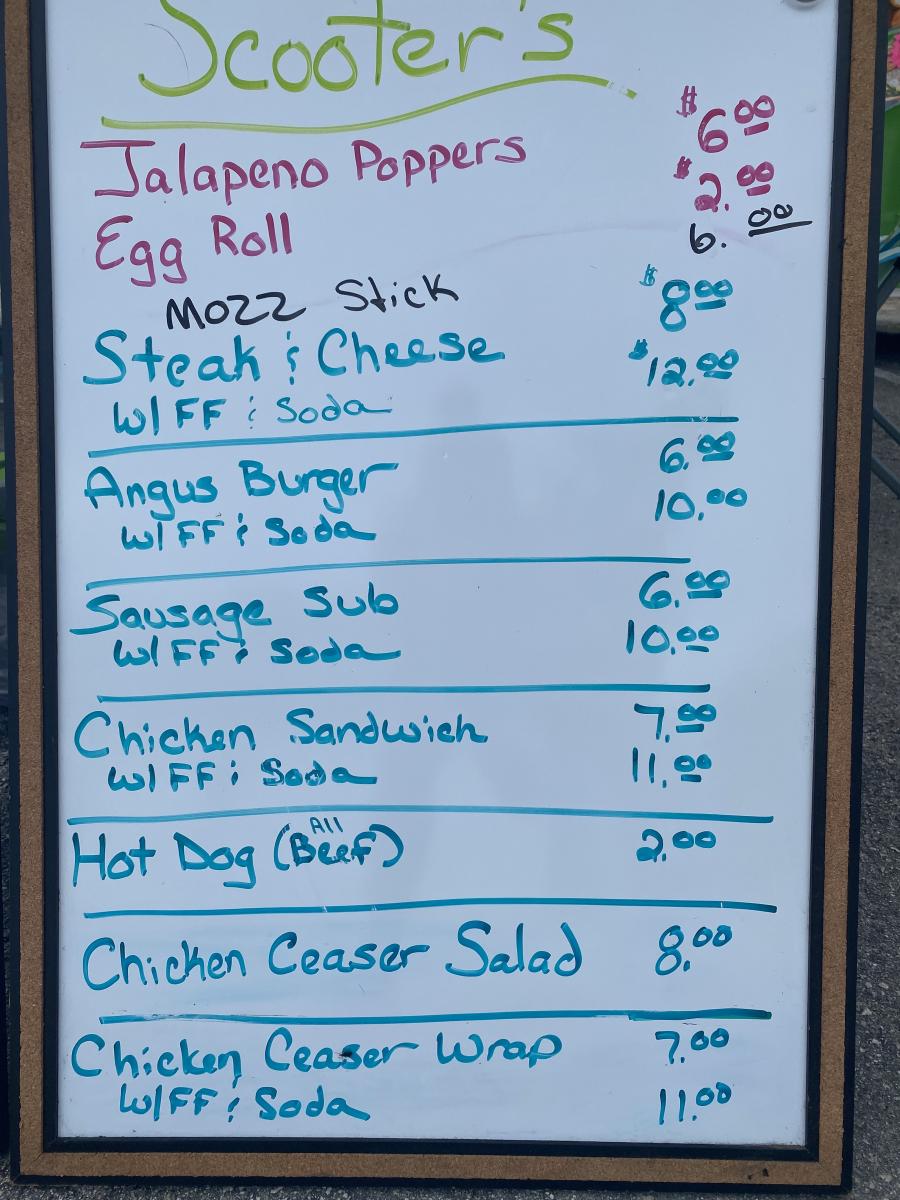 Scooter's
Jalapeno Poppers $6.00
Egg Roll $2.00
Mozz Stick 6.00
Steak & Cheese $8.00
W/FF & Soda $12.00
Angus Burger 6.00
W/FF & Soda 10.00
Sausage Sub 6.00
W/FF & Soda 10.00
Chicken Sandwich 7.00
W/FF & Soda 11.00
Hot Dog (All Beef) 2.00
Chicken Ceaser Salad 8.00
Chicken Ceaser Wrap 7.00
W/FF & Soda 11.00